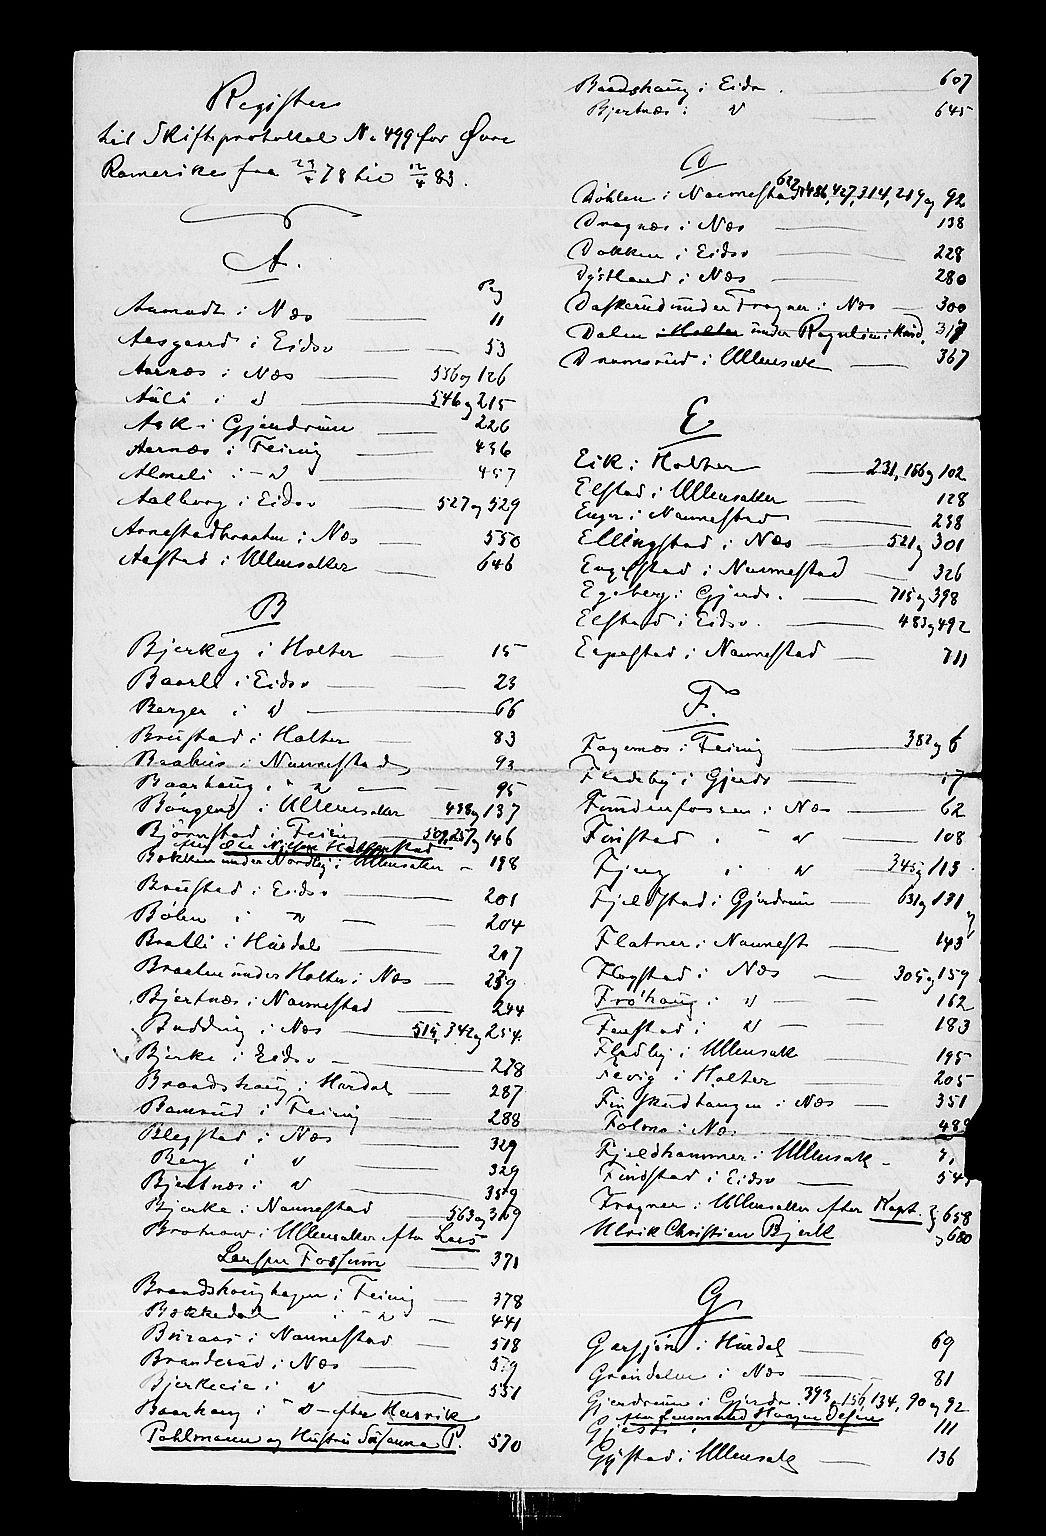 Register
til Skifteprotokol No 499 for Øvre
Romerike fra 23/4 78 til 12/4 83.
A.
Pag
Aamodt i Næs 11
Aasgaard i Eidsv 53
Aarnæs i Næs 536 og 126
Auli i " 546 og 215
Ask i Gjerdrum 226
Aarnæs i Feiring 436
Almeli i - " 457
Aalborg i Eidsv 527 og 529
Arnestadbraaten i Næs 550
Aastad i Ullensaker 646
B
Bjerkeg i Holter 15
Baarli i Eidsv 23
Berger i " 66
Brustad i Holter 83
Braahus i Nannestad 93
Baarhaug i " 95
Baagen i Ullensaker 438 og 137
Bjørnstad i Feiring 509, 257 og 146
efter Ole Nilsen Halgenstad
Bakken under Nordby i Ullensaker - 198
Brustad i Eidsv 201
Bølen i " 204
Bratli i Hurdal 217
Braaten under Holter i Næs 239
Bjertnæs i Nannestad 244
Budding i Næs 515, 342 og 254
Bjerke i Eidsv 278
Braadshaug i Hurdal 287
Bamrud i Feiring 288
Blegstad i Næs 329
Berg i " 329
Bjertnæs i " 359
Bjerke i Nannestad 563 og 369
Brotnow i Ullensaker efter Lars
Larsen Fossum 371
Braadshoughagen i Feiring 378
Bekkedal i " 441
Buraas i Nannestad 518
Branderud i Næs 529
Bjerkecie i " 551
Baarhaug i " - efter Henrik
Pohlmann og Hustru Susanna P. 570
Baadshaug i Eidsv. 607
Bjertnæs i " 645
D
Döhlen i Nannestad 622, 486, 427, 314, 219 og 92
Dragnæs i Næs 138
Dokken i Eidsv 228
Dystland i Næs 280
Daskerud under Fragner i Næs 300
Dalen i Holter under Rognlien i Hurd. 317
Dramsrud i Ullensak 367
E
Eik i Holter 231, 166 og 102
Elstad i Ullensaker 128
Enger i Nannestad 238
Ellingstad i Næs 521 og 301
Engelstad i Nannestad 326
Egeberg i Gjerdr. 715 og 398
Elstad i Eidsv. 483 og 492
Espestad i Nannestad 711
F.
Fagernæs i Feiring 382 og 6
Fladeby i Gjerdr 17
Fundenfossen i Næs 62
Finstad i " 108
Fjeng i " 345 og 113
Fjeldstad i Gjerdrum 631 og 131
Flatner i Nannest 143
Flagstad i Næs 305 og 159
Frøhaug i " 162
Fenstad i " 183
Fladby i Ullensak 195
Fevig i Holter 205
Finskudhaugen i Næs 351
Folmo i Næs 489
Fjeldhammer i Ullensak -
Findstad i Eidsv 54
Fragner i Ullensaker efter Kapt. } 658
Ulrik Christian Bjerk og 680
G
Garsjøen i Hurdal 69
Grøndalen i Næs 81
Gjerdrum i Gjerdr. 393, 156, 134, 90 og 92
Gjesti i 111
Gystad i Ullensak 136